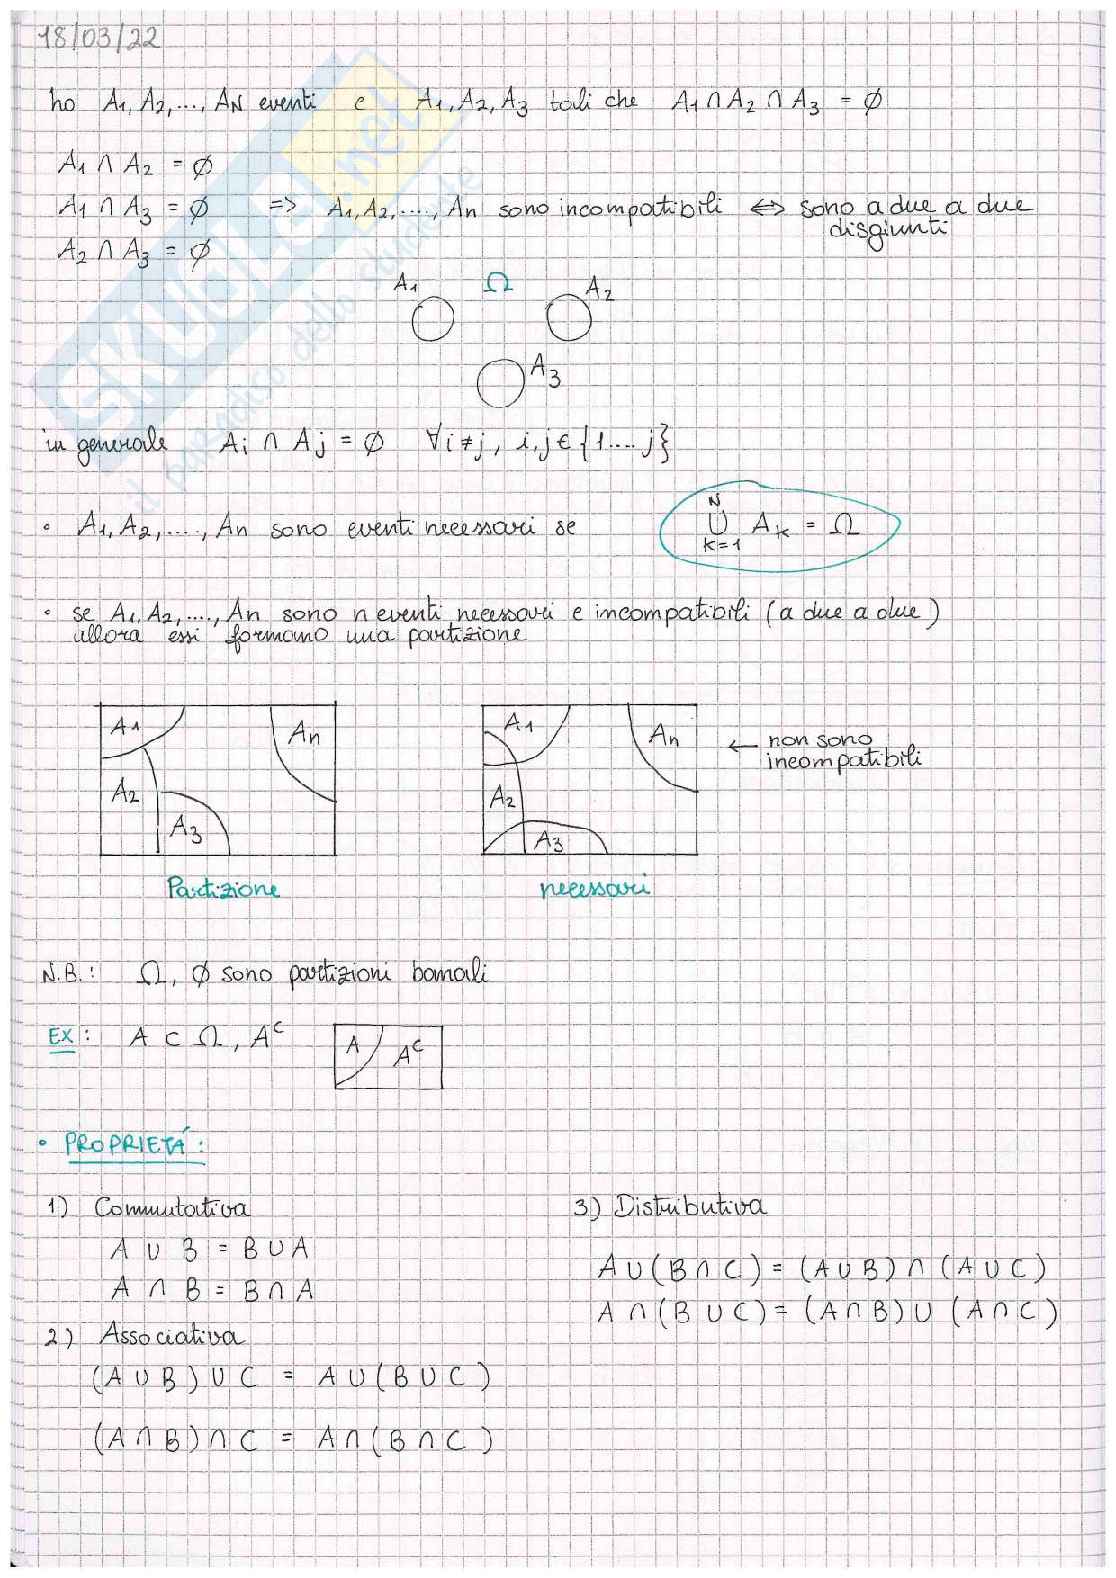 18/03/22
ho A1, A2, ..., AN eventi e A1, A2, A3 tali che A1 ∩ A2 ∩ A3 = ∅
A1 ∩ A2 = ∅
A1 ∩ A3 = ∅ => A1, A2, ...., An sono incompatibili <=> sono a due a due
disgiunti
A2 ∩ A3 = ∅
A1 Ω A2
A3
in generale Ai ∩ Aj = ∅ ∀i≠j, i,j ∈ {1....j}
• A1, A2, ...., An sono eventi necessari se
N
∪ Ak = Ω
k=1
• se A1, A2, ...., An sono n eventi necessari e incompatibili (a due a due)
allora essi formano una partizione
A1 An
A2
A3
Partizione
A1 An
A2
A3
necessari
← non sono
incompatibili
N.B.: Ω, ∅ sono partizioni banali
EX: A ⊂ Ω, A^C
A A^C
• PROPRIETÁ:
1) Commutativa
A ∪ B = B ∪ A
A ∩ B = B ∩ A
2) Associativa
(A ∪ B) ∪ C = A ∪ (B ∪ C)
(A ∩ B) ∩ C = A ∩ (B ∩ C)
3) Distributiva
A ∪ (B ∩ C) = (A ∪ B) ∩ (A ∪ C)
A ∩ (B ∪ C) = (A ∩ B) ∪ (A ∩ C)
SKUOLA.net
il paradiso dello studente